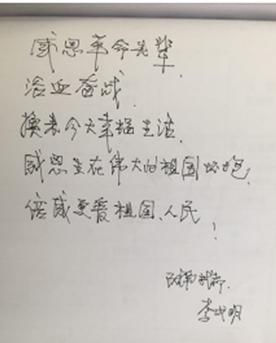 感恩革命先辈
浴血奋战
换来今天幸福生活
感恩生在伟大的祖国怀抱
倍感更爱祖国、人民
！
李戈明